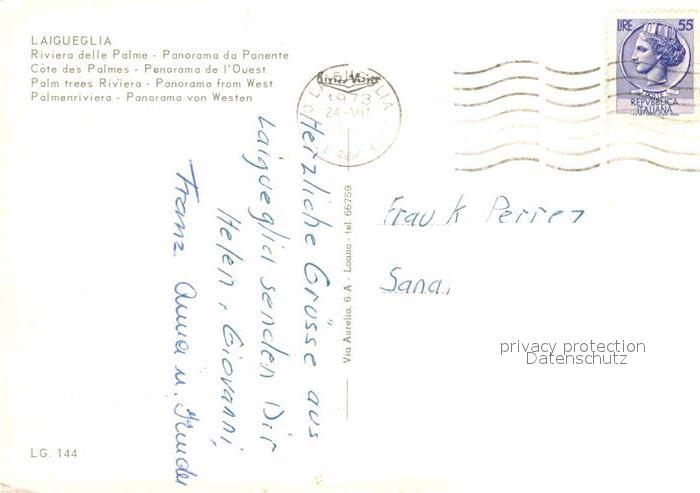 LAIGUEGLIA
Riviera delle Palme - Panorama da Ponente
Côte des Palmes - Panorama de l'Ouest
Palm trees Riviera - Panorama from West
Palmenriviera - Panorama von Westen
1973
24-VII
LIRE 55
POSTE
REPVBBLICA
ITALIANA
Herzliche Grüsse aus
Laigueglia senden Dir
Helen, Giovanni,
Franz Anna u. Kinder
Via Aurelia, 6 A - Loano - tel 66759
Frau K Perren
Sana
privacy protection
Datenschutz
LG. 144